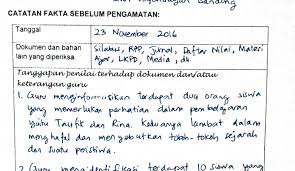 Bandung
CATATAN FAKTA SEBELUM PENGAMATAN:
Tanggal 23 November 2016
Dokumen dan bahan lain yang diperiksa Silabus, RPP, Jurnal, Daftar Nilai, Materi Ajar, LKPD, Media, dll.
Tanggapan penilai terhadap dokumen dan/atau keterangan guru
1. Guru menginformasikan terdapat dua orang siswa
yang memerlukan perhatian dalam pembelajaran
yaitu Taufik dan Rina. Keduanya lambat dalam
menghafal dan menyebutkan tokoh-tokoh sejarah
dan suatu peristiwa.
2. Guru mengidentifikasi terdapat 10 siswa yang